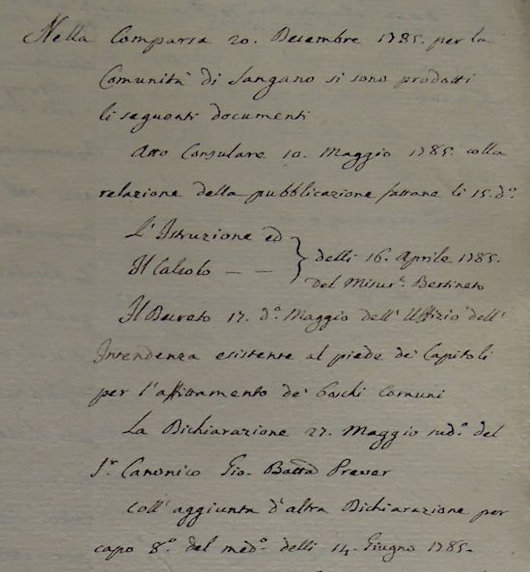 Nella Comparsa 20. Decembre 1785. per la
Comunità di Sangano si sono prodotti
li seguenti documenti
Atto Consulare 10. Maggio 1785. colla
relazione della pubblicazione fattane li 15. d.º
L'Istruzione ed
Il Calcolo — — } delli 16. Aprile 1785.
del Misur.e Bertineto
Il Decreto 17. d.º Maggio dell'Uffizio dell'
Intendenza esistente al piede de' Capitoli
per l'affittamento de' boschi comuni
La Dichiarazione 27. Maggio sud.º del
S.r Canonico Gio. Batta Prever
coll'aggiunta d'altra Dichiarazione per
capo 8.º del med.º delli 14. Giugno 1785.